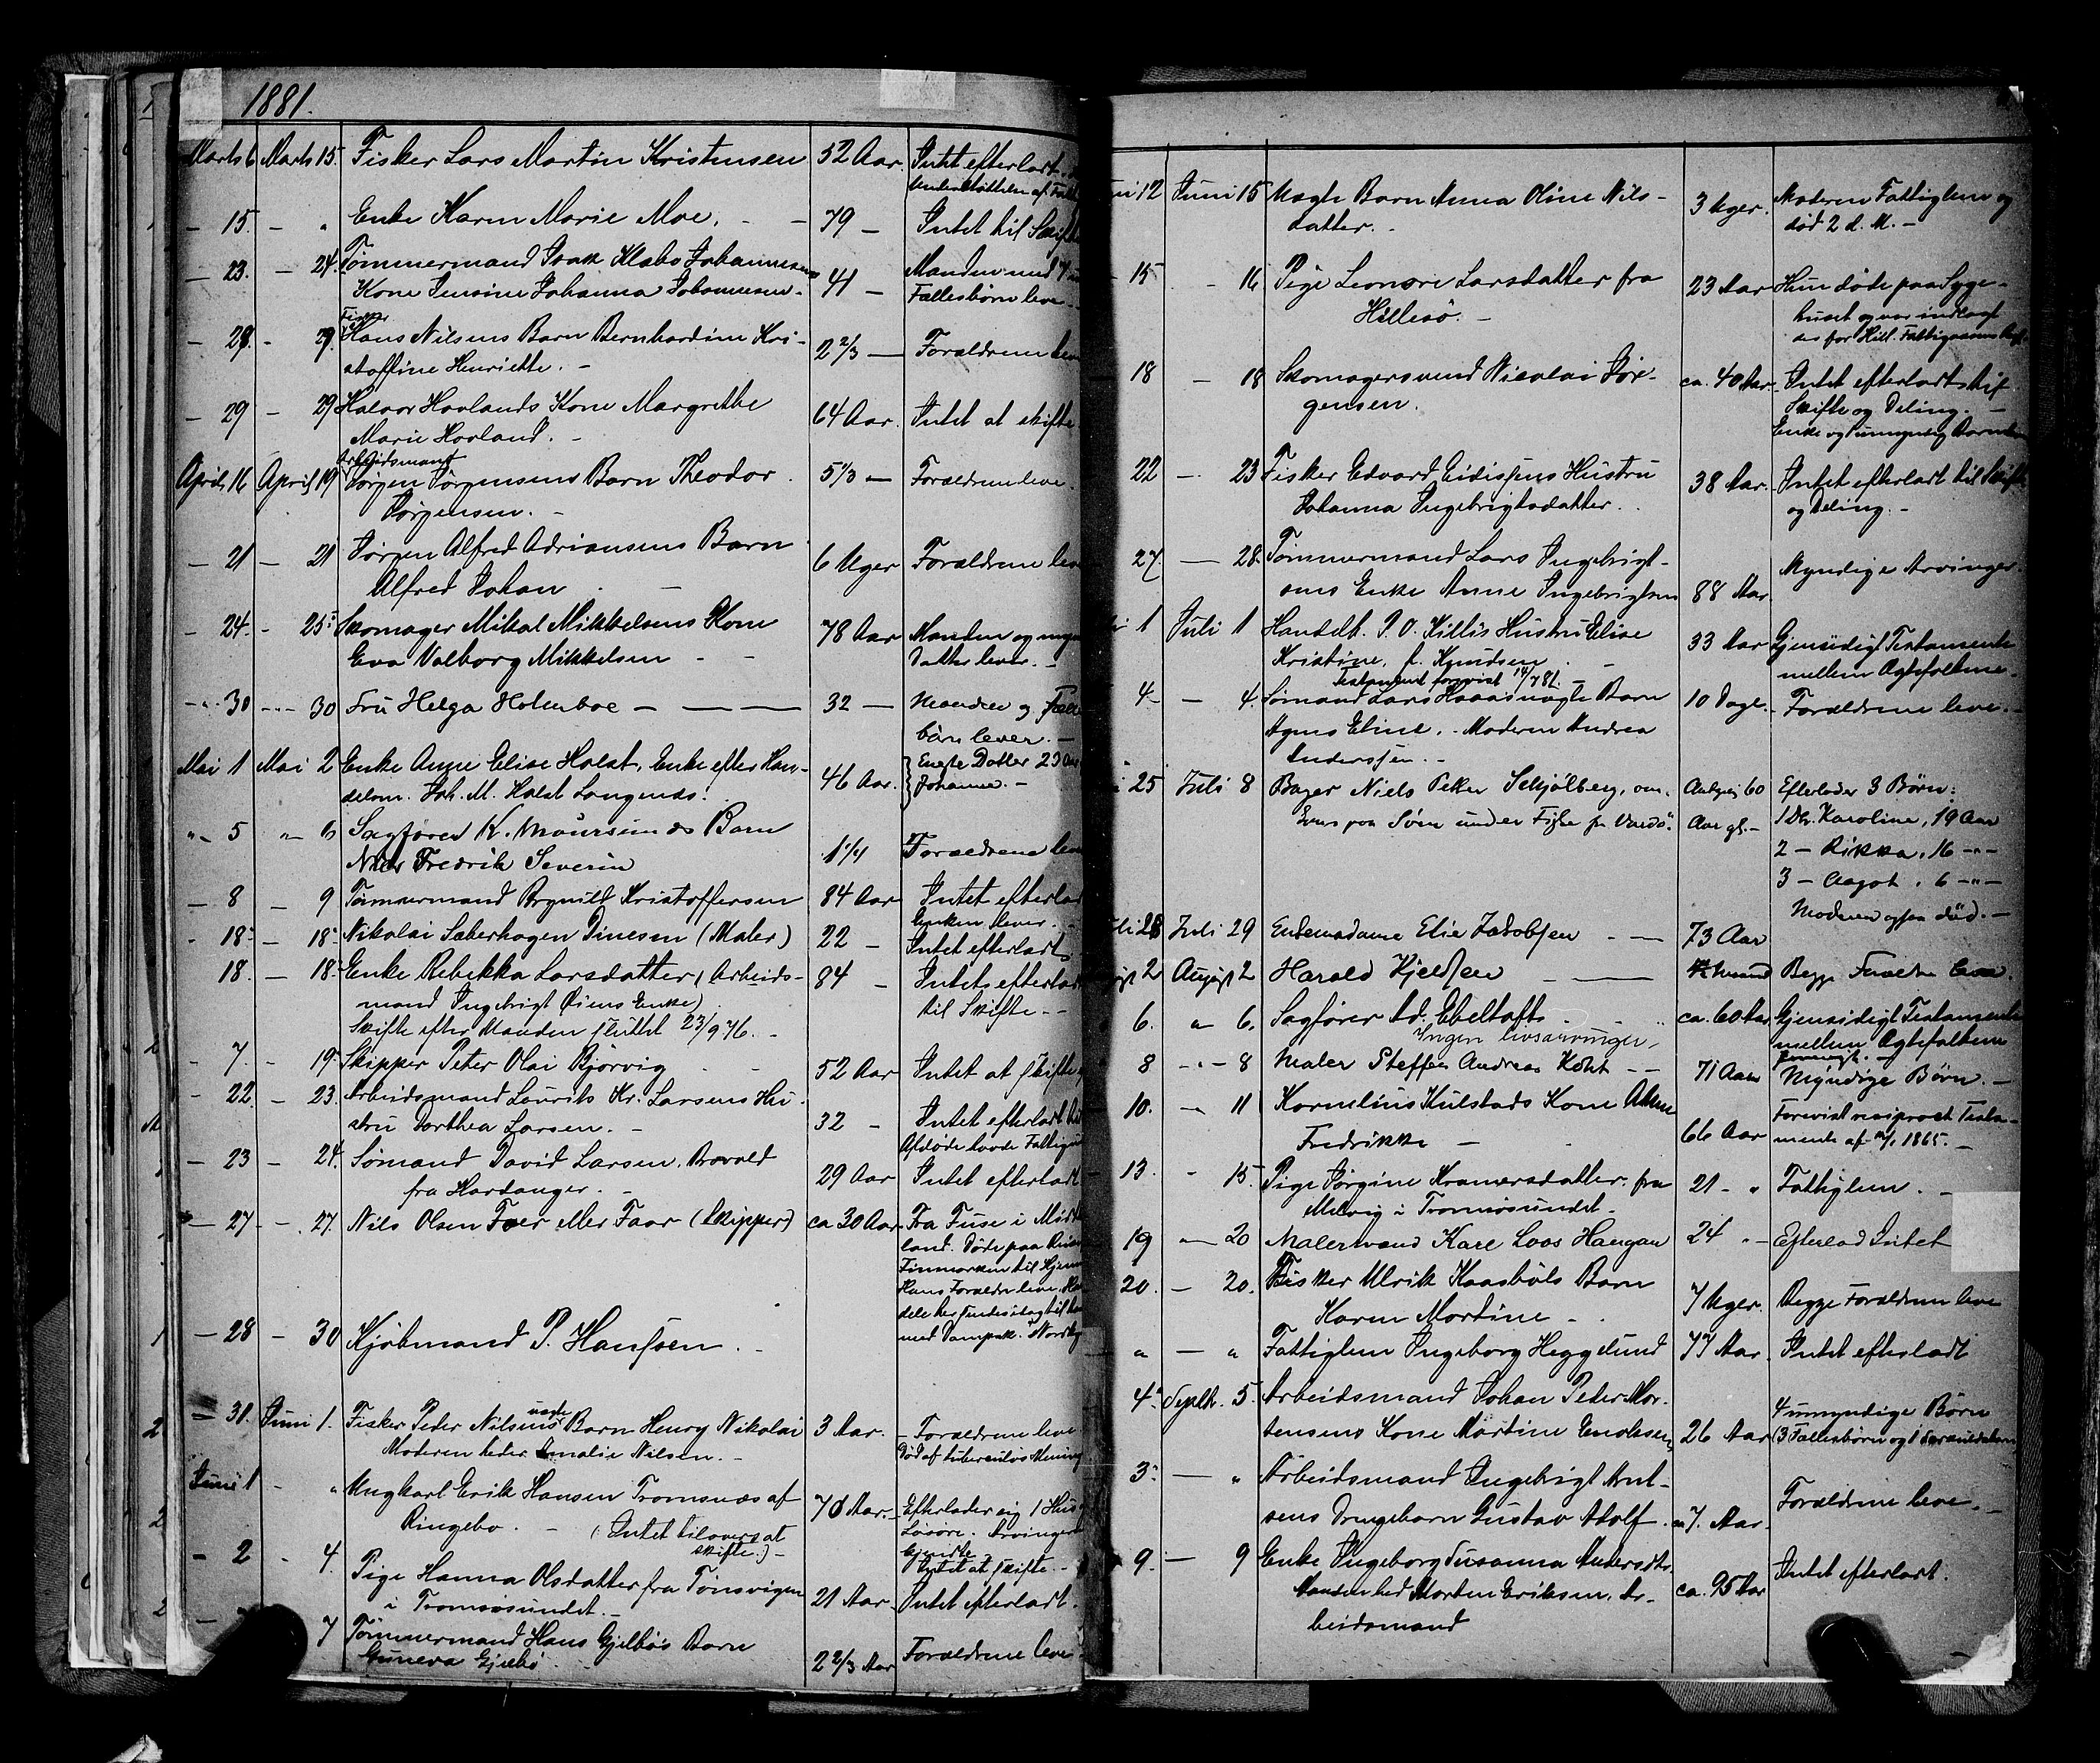 1881.
Marts 6 Marts 15. Fisker Lars Martin Kristensen 52 Aar. Intet efterladt.
Understøttelse af
- 15. - " Enke Karen Marie Moe. - - 79 - Intet til Skifte
- 23. - 24. Tømmermand Isak Klabo Johannesens Manden med
Kone Jensine Johanna Johannesen. 41 - Fællesbørn leve.
Fisker
- 29. - 29. Hans Nilsens Barn Bernhardine Kri-
stoffine Henriette. - 2 2/3 - Forældrene leve
- 29 - 29 Halvor Hovlands Kone Margrethe 64 Aar. Intet at skifte.
Marie Hovland. -
Arbeidsmand
April 16 April 19 Jørgen Jørgensens Barn Theodor 5 1/3 - Forældrene leve.
Jørgensen. -
- 21 - 21 Jørgen Alfred Adriansens Barn 6 Uger Forældrene leve
Alfred Johan -
- 24. - 25. Skomager Mikal Mikkelsens Kone 78 Aar Manden og
Eva Valborg Mikkelsen - - Datter lever. -
- 30 - 30 Fru Helga Holmboe - - - 32 - Manden og
børn lever. -
Mai 1 Mai 2 Enke Anne Elise Holst, Enke efter Han- Eneste Datter 23 Aar
delsm. Joh. M. Holst Langnes. 46 Aar. Johanna. -
" 5 " 6 Sagfører K. Maursunds Barn
Nils Fredrik Severin 1 1/4 Forældrene leve
- 8 - 9 Tømmermand Brynild Kristoffersen 84 Aar Intet efterladt
Enken lever.
- 18 - 18 Nikolai Saberhagen Dinesen (Maler) 22 - Intet efterladt
18. - 18. Enke Rebekka Larsdatter (Arbeids- 84 - Intet efterladt
mand Ingebrigt Øiens Enke) til Skifte. -
Skifte efter Manden sluttet 23/9 76. -
- 7. - 19. Skipper Peter Olai Bjørvig - - 52 Aar Intet at skifte
- 22. - 23. Arbeidsmand Laurits Kr. Larsens Hu-
stru Dorthea Larsen. - 32 - Intet efterladt
Afdøde havde
- 23 - 24. Sømand David Larsen Bravold
fra Hardanger. - 29 Aar Intet efterladt
- 27 - 27. Nils Olsen Foer eller Faar (Skipper) ca 30 Aar Fra Fuse i
land. Døde paa
Finmarken til Hjem
Hans Forældre leve.
med Dampsk.
- 28 - 30 Kjøbmand P. Hanssen. -
uægte
- 31. Juni 1. Fisker Peder Nilsens Barn Henry Nikolai 3 Aar. - Forældrene leve
Moderen heder Amalie Nilsen. - Død af tuberculøs
Juni 1 - " Ungkarl Erik Hansen Tromsnæs af 70 Aar. Efterlader sig 1 Hus
Ringebo. - (Intet tilovers at Løsøre. Arvinger
skifte.) - Intet at skifte. -
- 2 - 4. Pige Hanna Olsdatter fra Tønsvigen
i Tromsøsundet. - 21 Aar. Intet efterladt.
7 Tømmermand Hans Gjelbø's Barn
Gjelbø. - 2 2/3 Aar Forældrene leve.
12 Juni 15 Uægte Barn Anna Oline Nils- 3 Uger. Moderen Fattiglem og
datter. - død 2 d. M. -
15 - 16 Pige Leonore Larsdatter fra 23 Aar Hun døde paa Syge-
Hillesø. - huset og var indlagt
der for Hill. Fattigvæsens
18 - 18 Skomagersvend Nicolai Jør- ca. 40 Aar. Intet efterladt til
gensen. Skifte og Deling. -
Enke og umyndig
22 - 23 Fisker Edvard Eidissens Hustru 38 Aar. Intet efterladt til Skifte
Johanna Ingebrigtsdatter. og Deling. -
27. - 28. Tømmermand Lars Ingebrigt- Myndige Arvinger.
sens Enke Anne Ingebrigtsen 88 Aar.
1 Juli 1 Handelb. P. O. Killis Hustru Elise 33 Aar Gjensidigt Testamente
Kristine, f. Knudsen. - mellem Ægtefællene.
Testament forevist 14/7 81. -
4 - 4. Sømand Lars Haaas uægte Barn 10 Dage. Forældrene leve. -
Agnes Eline. - Moderen Andrea
Anderssen. -
25 Juli 8 Bager Niels Peter Schjølberg, om- 60 Efterlader 3 Børn:
kom paa Søen under Fiske fr Vardø. Aar gl. - 1 Dtr. Karoline, 19 Aar
2 - Rikka, 16 - " -
3 - Aagot, 6 - " -
Moderen ogsaa død. -
28 Juli 29 Enkemadame Elie Jakobsen - - 73 Aar
2 August 2 Harald Kjeldsen - Begge Forældre leve.
6. " 6. Sagfører Ad. Ebeltoft - ca. 60 Aar Gjensidigt Testamente
Ingen livsarvinger, mellem Ægtefællene
8 - " - 8 Maler Steffen Andreas Koht - - 71 Aar Myndige Børn. -
10. - 11 Kornelius Kulstads Kone Forevist reciprocit Testa-
Fredrikke - 66 Aar mente af 1865. -
13. - 15. Pige Jørgine Kramersdatter fra 21 - " Fattiglem. -
Melvig i Tromsøsundet. -
19 - 20 Malersvend Karl Loos Haugan 24 " Efterlod Intet
20. - 20. Fisker Ulrik Kaasbøls Barn 7 Uger. Begge Forældrene leve
Karen Martine - .
" - " Fattiglem Ingeborg Heggelund 77 Aar. Intet efterladt
4. Septbr. 5. Arbeidsmand Johan Peter Mor- 4 umyndige Børn
tensens Kone Martine Enoksen 26 Aar (3 Fællesbørn og 1
3. - " Arbeidsmand Ingebrigt Arnt- Forældrene leve. -
sens Drengebarn Gustav Adolf. 7. Aar.
9. - 9 Enke Ingeborg Susanna Andersdtr. Intet efterladt.
Manden hed Morten Eriksen, Ar- ca. 95 Aar
beidsmand